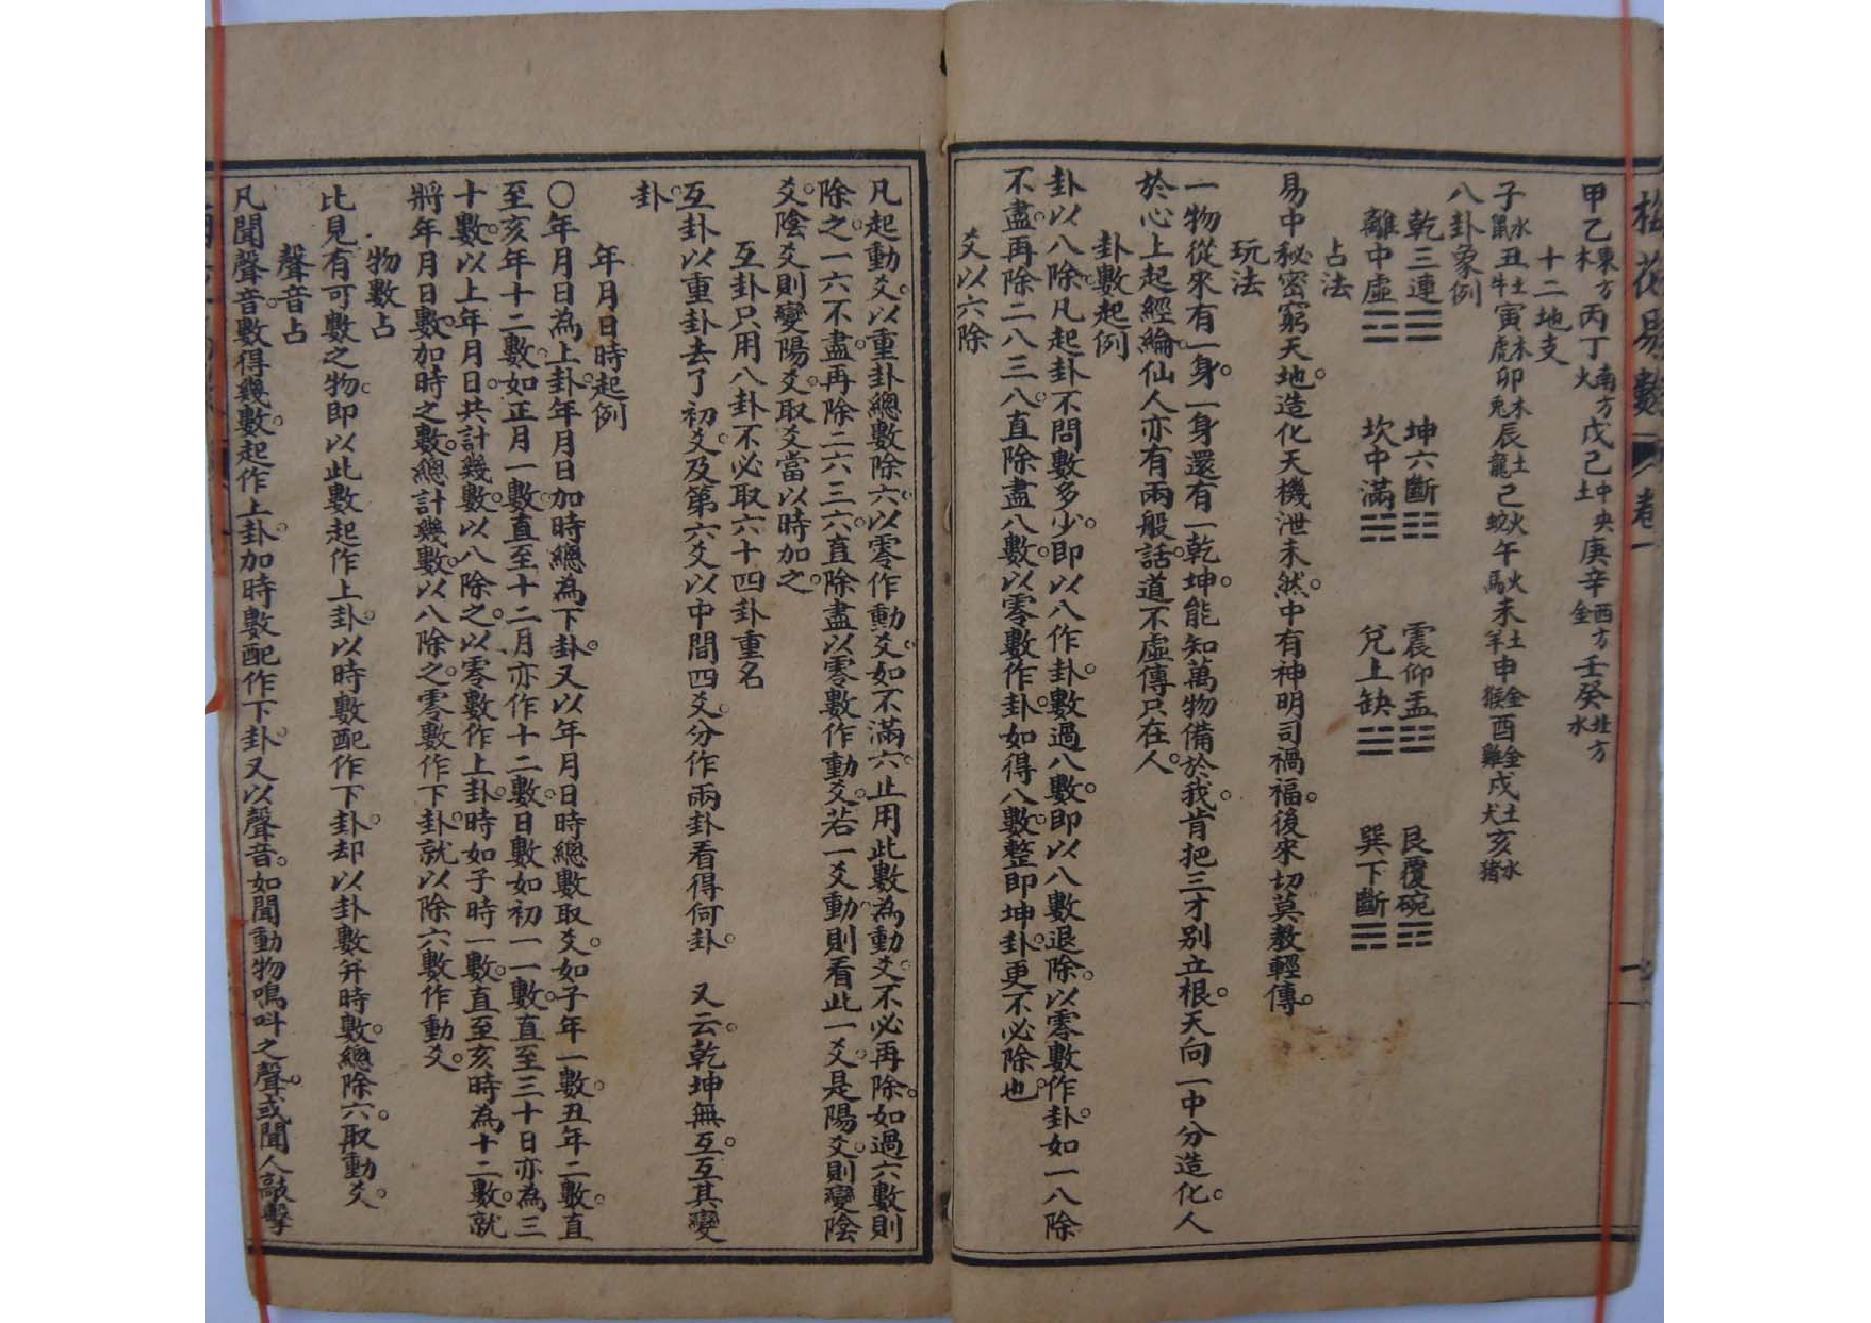 梅花易數 卷一
甲乙東方木 丙丁南方火 戊己中央土 庚辛西方金 壬癸北方水
十二地支
子水鼠丑土牛寅木虎卯木兔辰土龍巳火蛇午火馬未土羊申金猴酉金雞戌土犬亥水豬
八卦象例
乾三連☰ 坤六斷☷ 震仰盂☳ 艮覆碗☶
離中虛☲ 坎中滿☵ 兌上缺☱ 巽下斷☴
占法
易中秘密窮天地。造化天機泄未然。中有神明司禍福。後來切莫教輕傳。
玩法
一物從來有一身。一身還有一乾坤。能知萬物備於我。肯把三才別立根。天向一中分造化。人
於心上起經綸。仙人亦有兩般話。道不虛傳只在人。
卦數起例
卦以八除。凡起卦不問數多少。即以八作卦。數過八數。即以八數退除。以零數作卦。如一八除
不盡。再除二八三八。直除盡八數。以零數作卦。如得八數。整即坤卦。更不必除也。
爻以六除
凡起動爻。以重卦總數除六。以零作動爻。如不滿六。止用此數為動爻。不必再除。如過六數則
除之。一六不盡。再除二六三六。直除盡以零數作動爻。若一爻動。則看此一爻。是陽爻。則變陰
爻。陰爻則變陽爻。取爻當以時加之。
互卦只用八卦不必取六十四卦重名
互卦以重卦去了初爻。及第六爻以中間四爻。分作兩卦看得何卦。 又云。乾坤無互。互其變
卦。
年月日時起例
〇年月日為上卦。年月日加時總為下卦。又以年月日時總數取爻。如子年一數。丑年二數。直
至亥年十二數。如正月一數。直至十二月亦作十二數。日數如初一一數。直至三十日亦為三
十數。以上年月日。共計幾數。以八除之。以零數作上卦。時如子時一數。直至亥時為十二數。就
將年月日數。加時之數。總計幾數。以八除之。零數作下卦。就以除六數作動爻。
物數占
比見有可數之物。即以此數起作上卦。以時數配作下卦。却以卦數并時數。總除六。取動爻。
聲音占
凡聞聲音。數得幾數。起作上卦。加時數配作下卦。又以聲音。如聞動物鳴叫之聲。或聞人敲擊